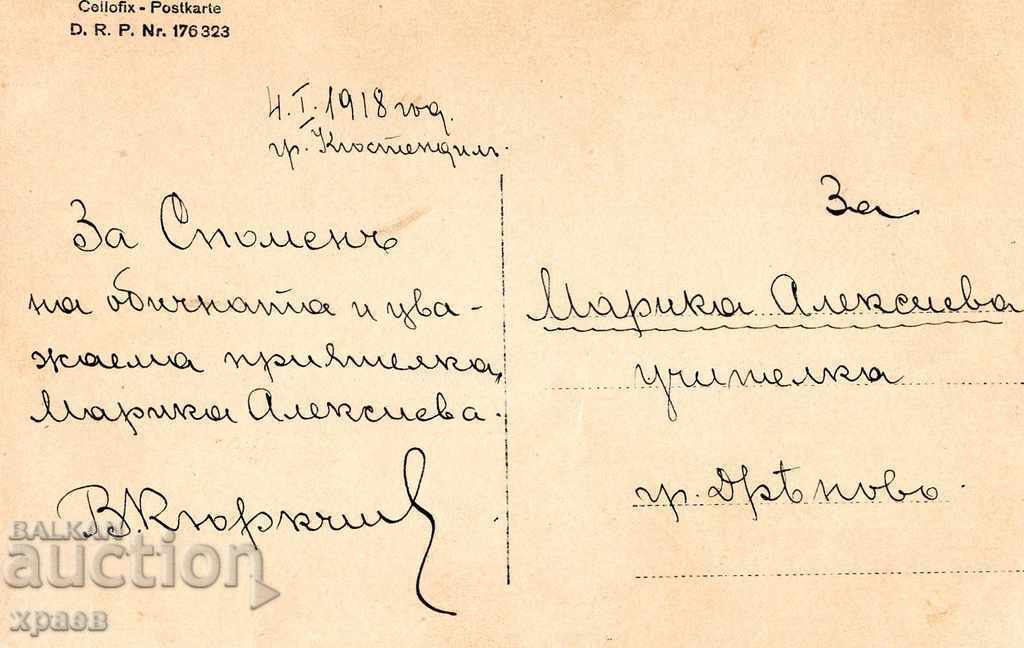 Cellofix - Postkarte
D. R. P. Nr. 176323
4.I.1918 год.
гр. Кюстендилъ.
За Споменъ
на обичната и ува-
жаема приятелка,
Марика Алексиева.
В. Кюркчиев
За
Марика Алексиева
учителка
гр. Дрѣново.
BALKAN
auction
храев